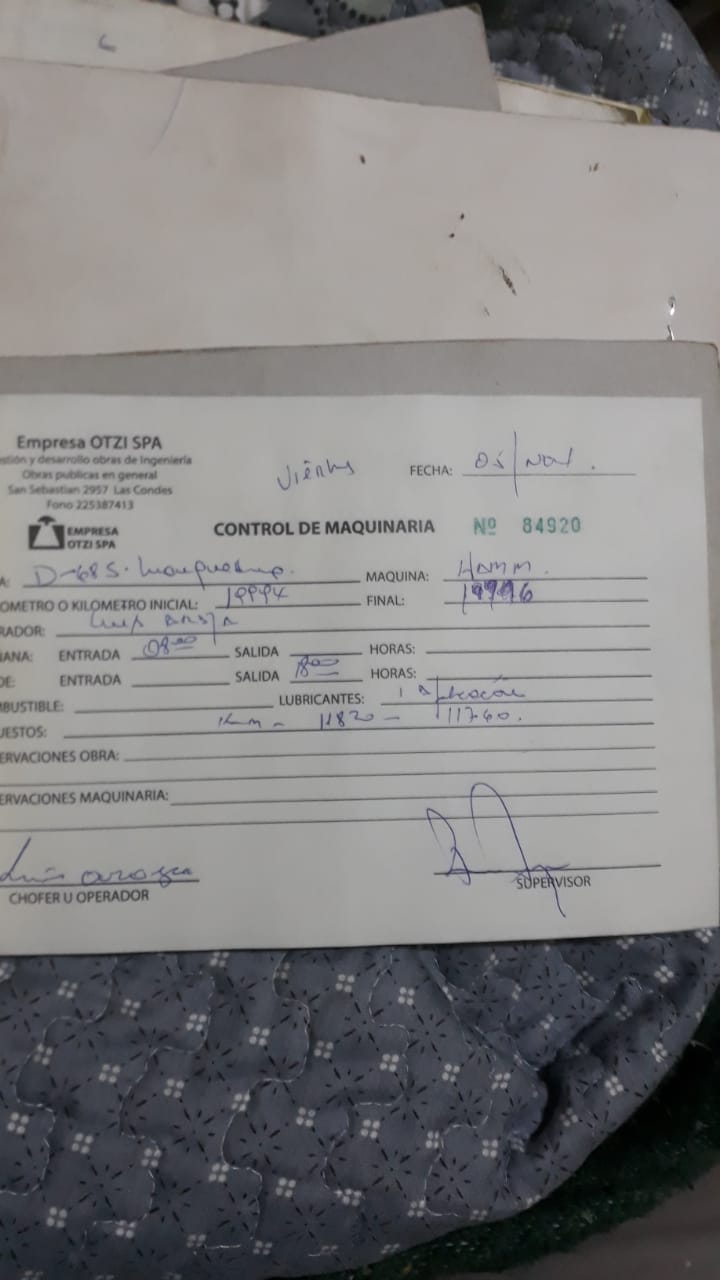 Empresa OTZI SPA
stión y desarrollo obras de Ingeniería
Obras publicas en general
San Sebastian 2957 Las Condes
Fono 225387413
Viernes FECHA: 05/Nov.
EMPRESA
OTZI SPA
CONTROL DE MAQUINARIA Nº 84920
A: D-68 S. MAQUINA: HAMM.
OMETRO O KILOMETRO INICIAL: 19994 FINAL: 19996
RADOR: Luis
ANA: ENTRADA 08:00 SALIDA HORAS:
DE: ENTRADA SALIDA 18:00 HORAS:
MBUSTIBLE: LUBRICANTES: 1
UESTOS: Km - 11820 - 11760.
ERVACIONES OBRA:
ERVACIONES MAQUINARIA:
Luis
CHOFER U OPERADOR
SUPERVISOR